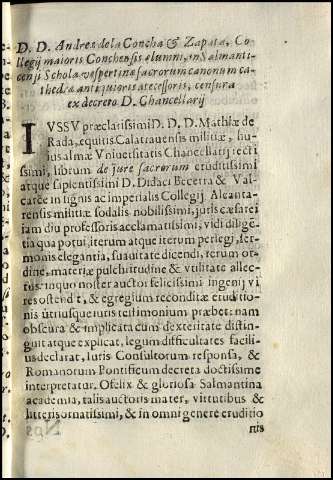 D. D. Andreæ de la Concha & Zapata, Co
llegij maioris Conchensis alumni, in Salmanti
censi Schola vespertinæ sacrorum canonum ca-
thedræ antiquioris atecessoris, censura
ex decreto D. Chancellarij
IVSSV præclatissimi D. D. D. Mathiæ de
Rada, equitis Calatrauensis militiæ, hu-
ius almæ Vniuersitatis Chancellarij recti
simi, librum de jure sacrorum eruditissimi
atque sapientissimi D. D. Didaci Becerra & Val
carce in signis ac imperialis Collegij. Alcanta-
rensis militiæ sodalis nobilissimi, juris cæsarei
iam diu professoris acclamatissimi, vidi diligé
tia qua potui, iterum atque iterum perlegi, ser-
monis elegantia, suauitate dicendi, rerum or-
dine, materiæ pulchritudine & vtilitate allec-
tus: in quo noster auctor felicissimi ingenij vi
res ostendit, & egregium reconditæ eruditio-
nis vtriusque iuris testimonium præbet: nam
obscura & implicata cum dexteritate distin-
guit atque explicat, legum difficultates facili-
us declarat, Iuris Consultorum responsa, &
Romanorum Pontificum decreta doctissime
interpretatur. O felix & gloriosa Salmantina
academia, talis auctoris mater, virtutibus &
litteris ornatissimi, & in omni genere eruditio
nis